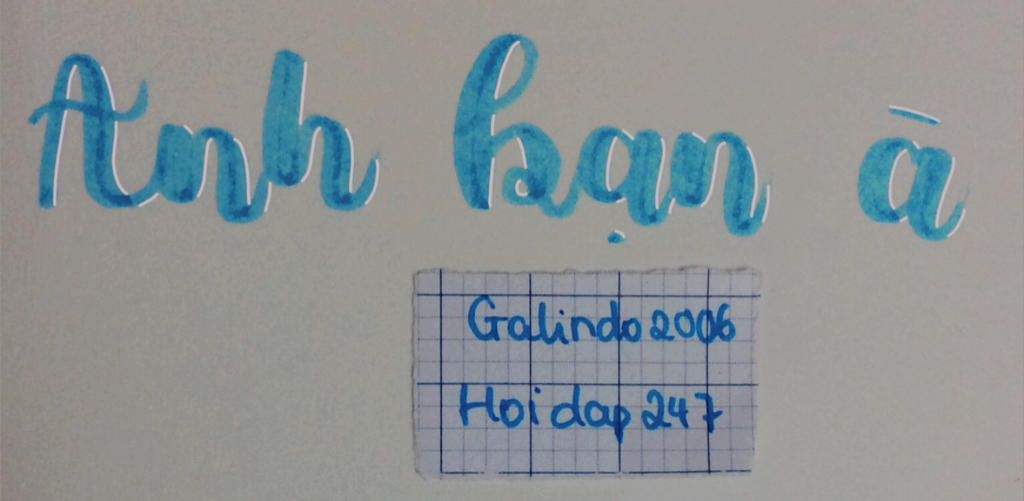 Anh bạn à
Galindo2006
Hoidap247